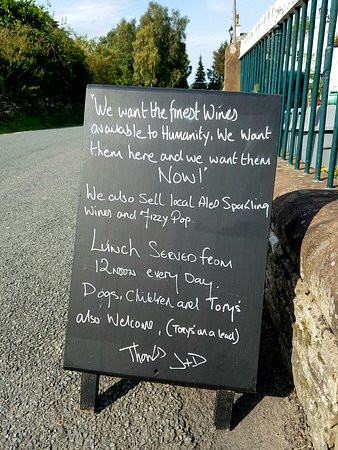 "We want the finest Wines
available to Humanity, We Want
them here and we want them
NOW!"
We also Sell local Ales Sparkling
Wines and Fizzy Pop.
LUNCH SERVED from
12 NOON every Day.
Dogs, Children and Torys'
also Welcome, (Torys' on a lead)
Thanks J+D